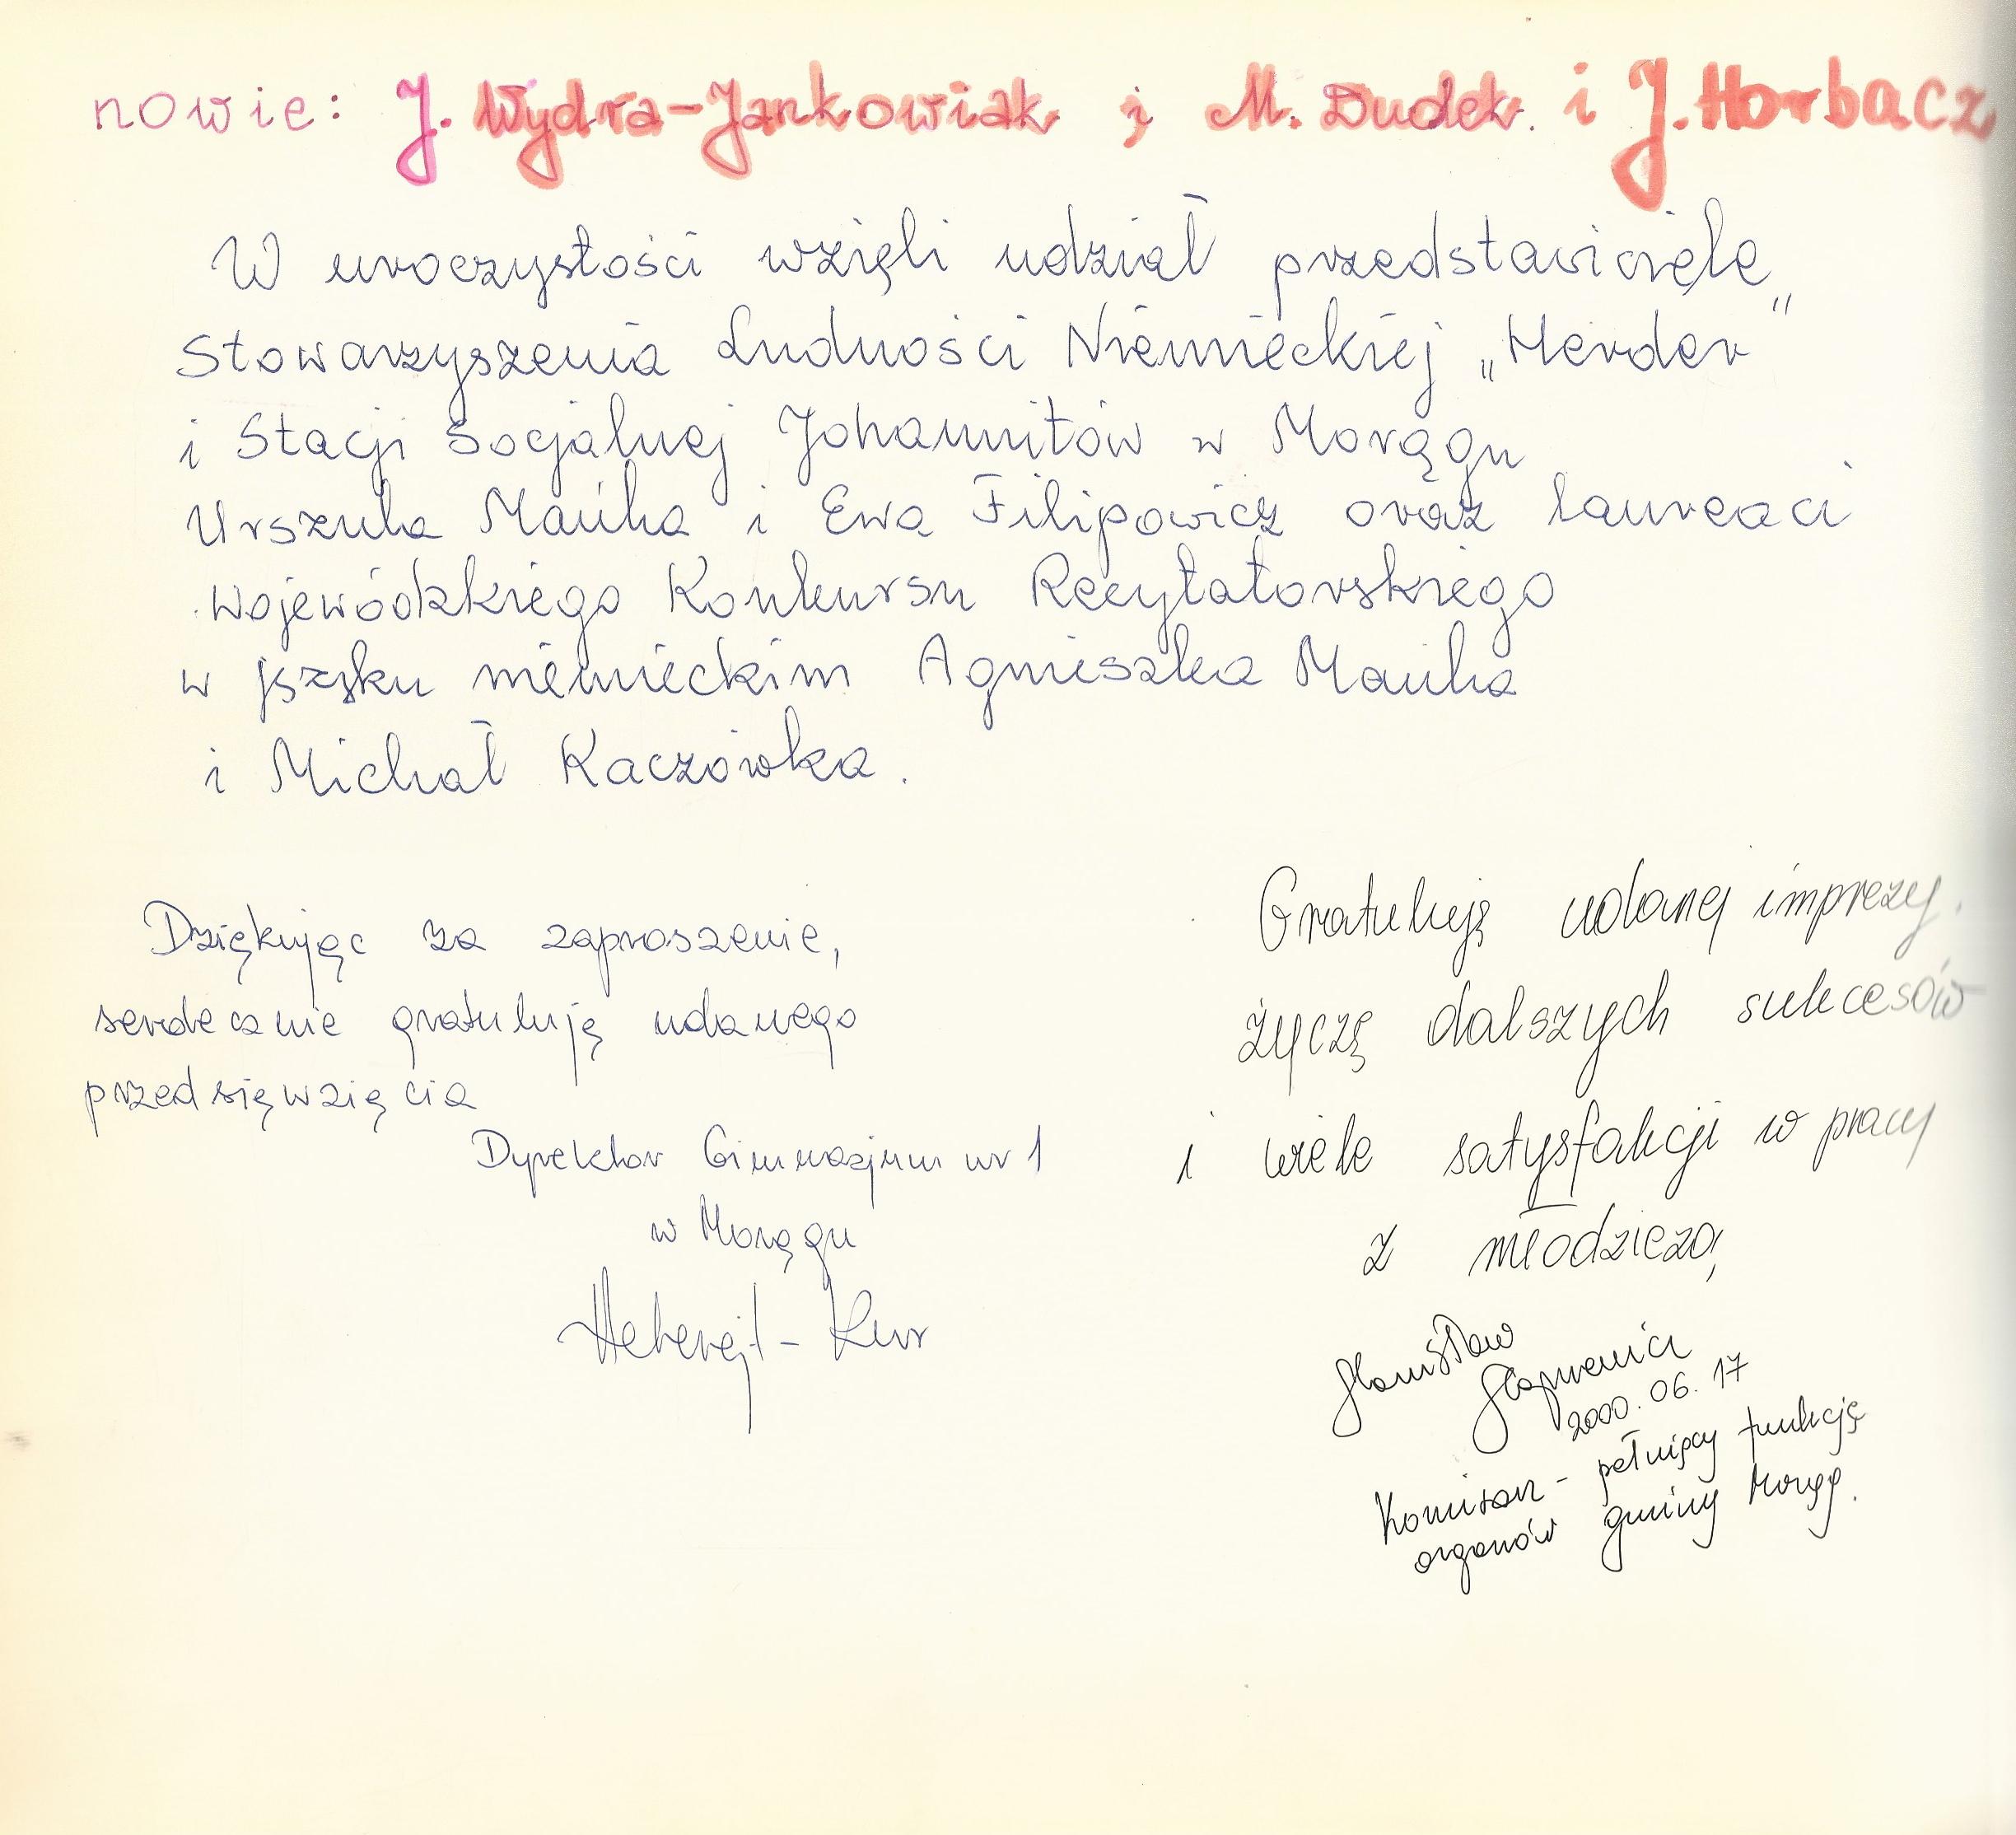 nowie: J. Wydra-Jankowiak i M. Dudek. i J. Horbacz
W uroczystości wzięli udział przedstawiciele
Stowarzyszenia Ludności Niemieckiej „Herder”
i Stacji Socjalnej Johannitów w Morągu
Urszula Mańka i Ewa Filipowicz oraz laureaci
Wojewódzkiego Konkursu Recytatorskiego
w języku niemieckim Agnieszka Mańka
i Michał Kaczówka.
Dziękując za zaproszenie,
serdecznie gratuluję udanego
przedsięwzięcia
Dyrektor Gimnazjum nr 1
w Morągu
Gratuluję udanej imprezy.
życzę dalszych sukcesów
i wiele satysfakcji w pracy
z młodzieżą
Stanisław
2000.06.17
Komisarz - pełniący funkcję
organów gminy Morąg.